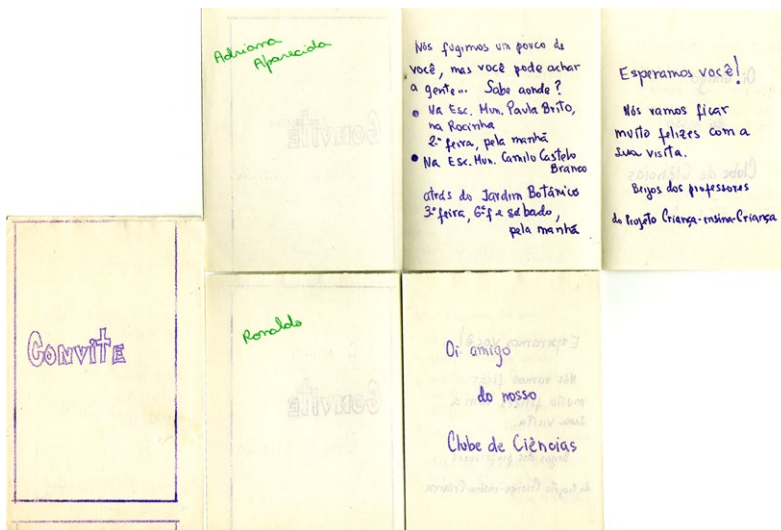 Adriana
Aparecida
Nós fugimos um pouco de
você, mas você pode achar
a gente... Sabe aonde?
• Na Esc. Mun. Paula Brito,
na Rocinha
2ª feira, pela manhã
• Na Esc. Mun. Camilo Castelo
Branco
atrás do Jardim Botânico
3ª feira, 6ª f e sábado,
pela manhã
Esperamos você!
Nós vamos ficar
muito felizes com a
sua visita.
Beijos dos professores
do Projeto Criança-ensina-Criança
CONVITE
Ronaldo
Oi amigo
do nosso
Clube de Ciências